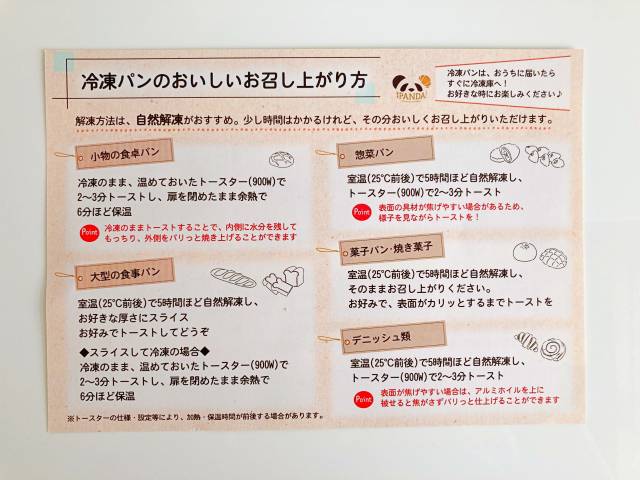 冷凍パンのおいしいお召し上がり方
PANDA
冷凍パンは、おうちに届いたら
すぐに冷凍庫へ！
お好きな時にお楽しみください♪
解凍方法は、自然解凍がおすすめ。少し時間はかかるけれど、その分おいしくお召し上がりいただけます。
小物の食卓パン
冷凍のまま、温めておいたトースター(900W)で
2〜3分トーストし、扉を閉めたまま余熱で
6分ほど保温
Point
冷凍のままトーストすることで、内側に水分を残して
もっちり、外側をパリっと焼き上げることができます
大型の食事パン
室温(25℃前後)で5時間ほど自然解凍し、
お好きな厚さにスライス
お好みでトーストしてどうぞ
◆スライスして冷凍の場合◆
冷凍のまま、温めておいたトースター(900W)で
2〜3分トーストし、扉を閉めたまま余熱で
6分ほど保温
惣菜パン
室温(25℃前後)で5時間ほど自然解凍し、
トースター(900W)で2〜3分トースト
Point
表面の具材が焦げやすい場合があるため、
様子を見ながらトーストを！
菓子パン・焼き菓子
室温(25℃前後)で5時間ほど自然解凍し、
そのままお召し上がりください。
お好みで、表面がカリッとするまでトーストを
デニッシュ類
室温(25℃前後)で5時間ほど自然解凍し、
トースター(900W)で2〜3分トースト
Point
表面が焦げやすい場合は、アルミホイルを上に
被せると焦がさずパリっと仕上げることができます
※トースターの仕様・設定等により、加熱・保温時間が前後する場合があります。